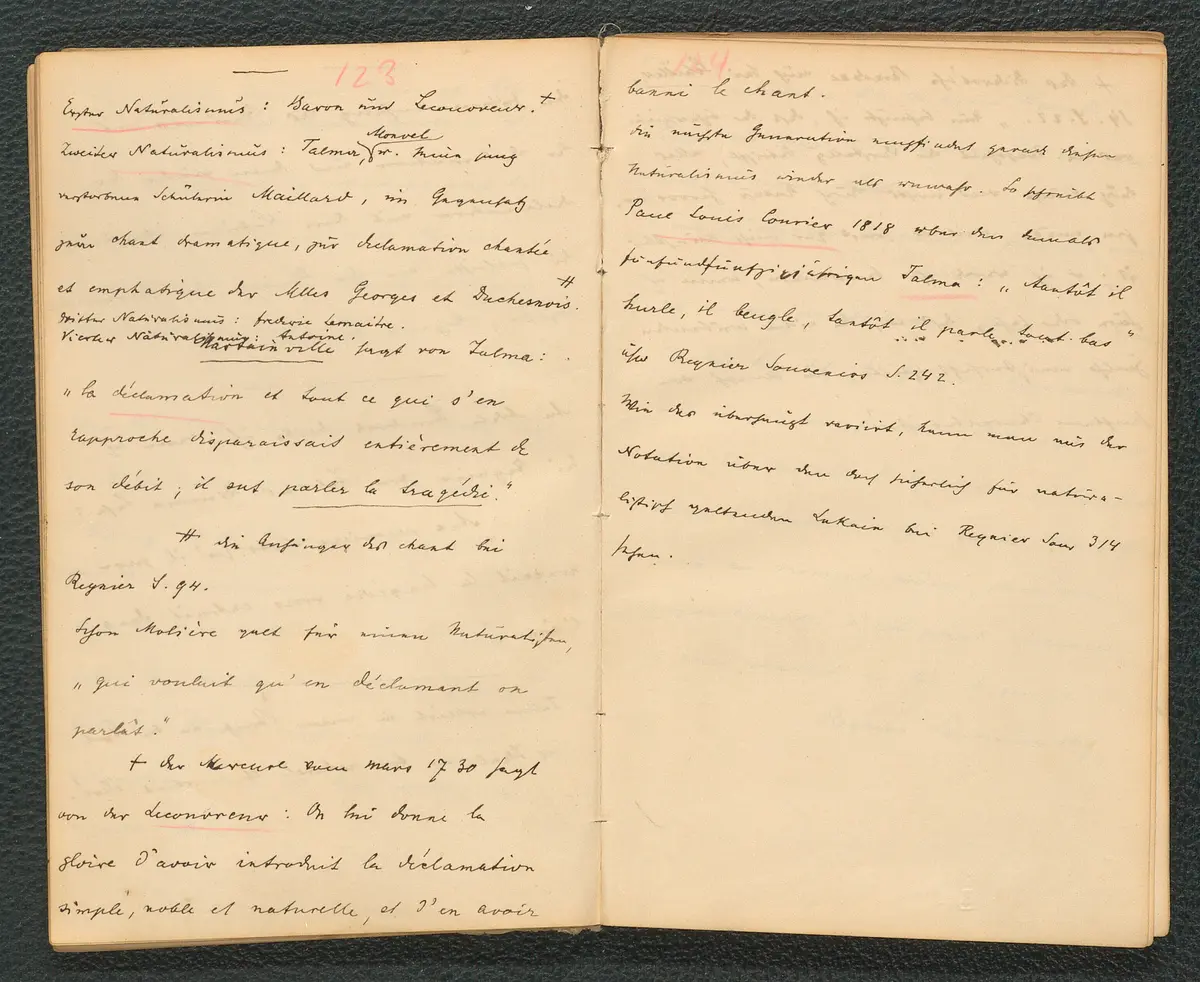 123
Erster Naturalismus : Baron und Lecouvreur. +
Monvel
Zweiter Naturalismus : Talma, u. seine jung
verstorbene Schülerin Maillard, im Gegensatz
zum chant dramatique, zur déclamation chantée
et emphatique der Mlles Georges et Duchesnois. ++
Dritter Naturalismus : Frederic Lemaitre.
Vierter Naturalismus : Antoine.
Martainville sagt von Talma :
„la déclamation et tout ce qui s'en
rapproche disparaissait entièrement de
son débit ; il sut parler la tragédie."
++ die Anfänger des chant bei
Regnier S. 94.
Schon Molière galt für einen Naturalisten,
„qui voulait qu'en déclamant on
parlât."
+ Der Mercure vom mars 1730 sagt
von der Lecouvreur : On lui donne la
gloire d'avoir introduit la déclamation
simple, noble et naturelle, et d'en avoir
124
banni le chant.
Die nächste Generation empfindet gerade diesen
Naturalismus wieder als unwahr. So schreibt
Paul Louis Courier 1818 über den damals
fünfundfünfzigjährigen Talma : „tantôt il
hurle, il beugle, tantôt il parle tout bas"
über Regnier Souvenirs S. 242.
Wie das überhaupt variirt, kann man aus der
Notation über den doch sicherlich für natura-
listisch geltenden Lekain bei Regnier Souv 314
sehen.